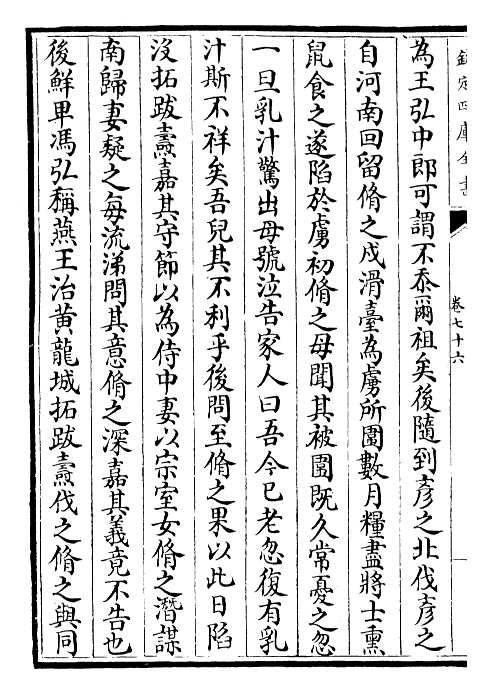 欽定四庫全書
卷七十六
為王弘中郎可謂不忝爾祖矣後隨到彥之北伐彥之
自河南回留脩之戍滑臺為虜所圍數月糧盡將士熏
鼠食之遂陷於虜初脩之母聞其被圍既久常憂之忽
一旦乳汁驚出母號泣告家人曰吾今已老忽復有乳
汁斯不祥矣吾兒其不利乎後問至脩之果以此日陷
沒拓跋燾嘉其守節以為侍中妻以宗室女脩之潛謀
南歸妻疑之每流涕問其意脩之深嘉其義竟不告也
後鮮卑馮弘稱燕王治黃龍城拓跋燾伐之脩之與同